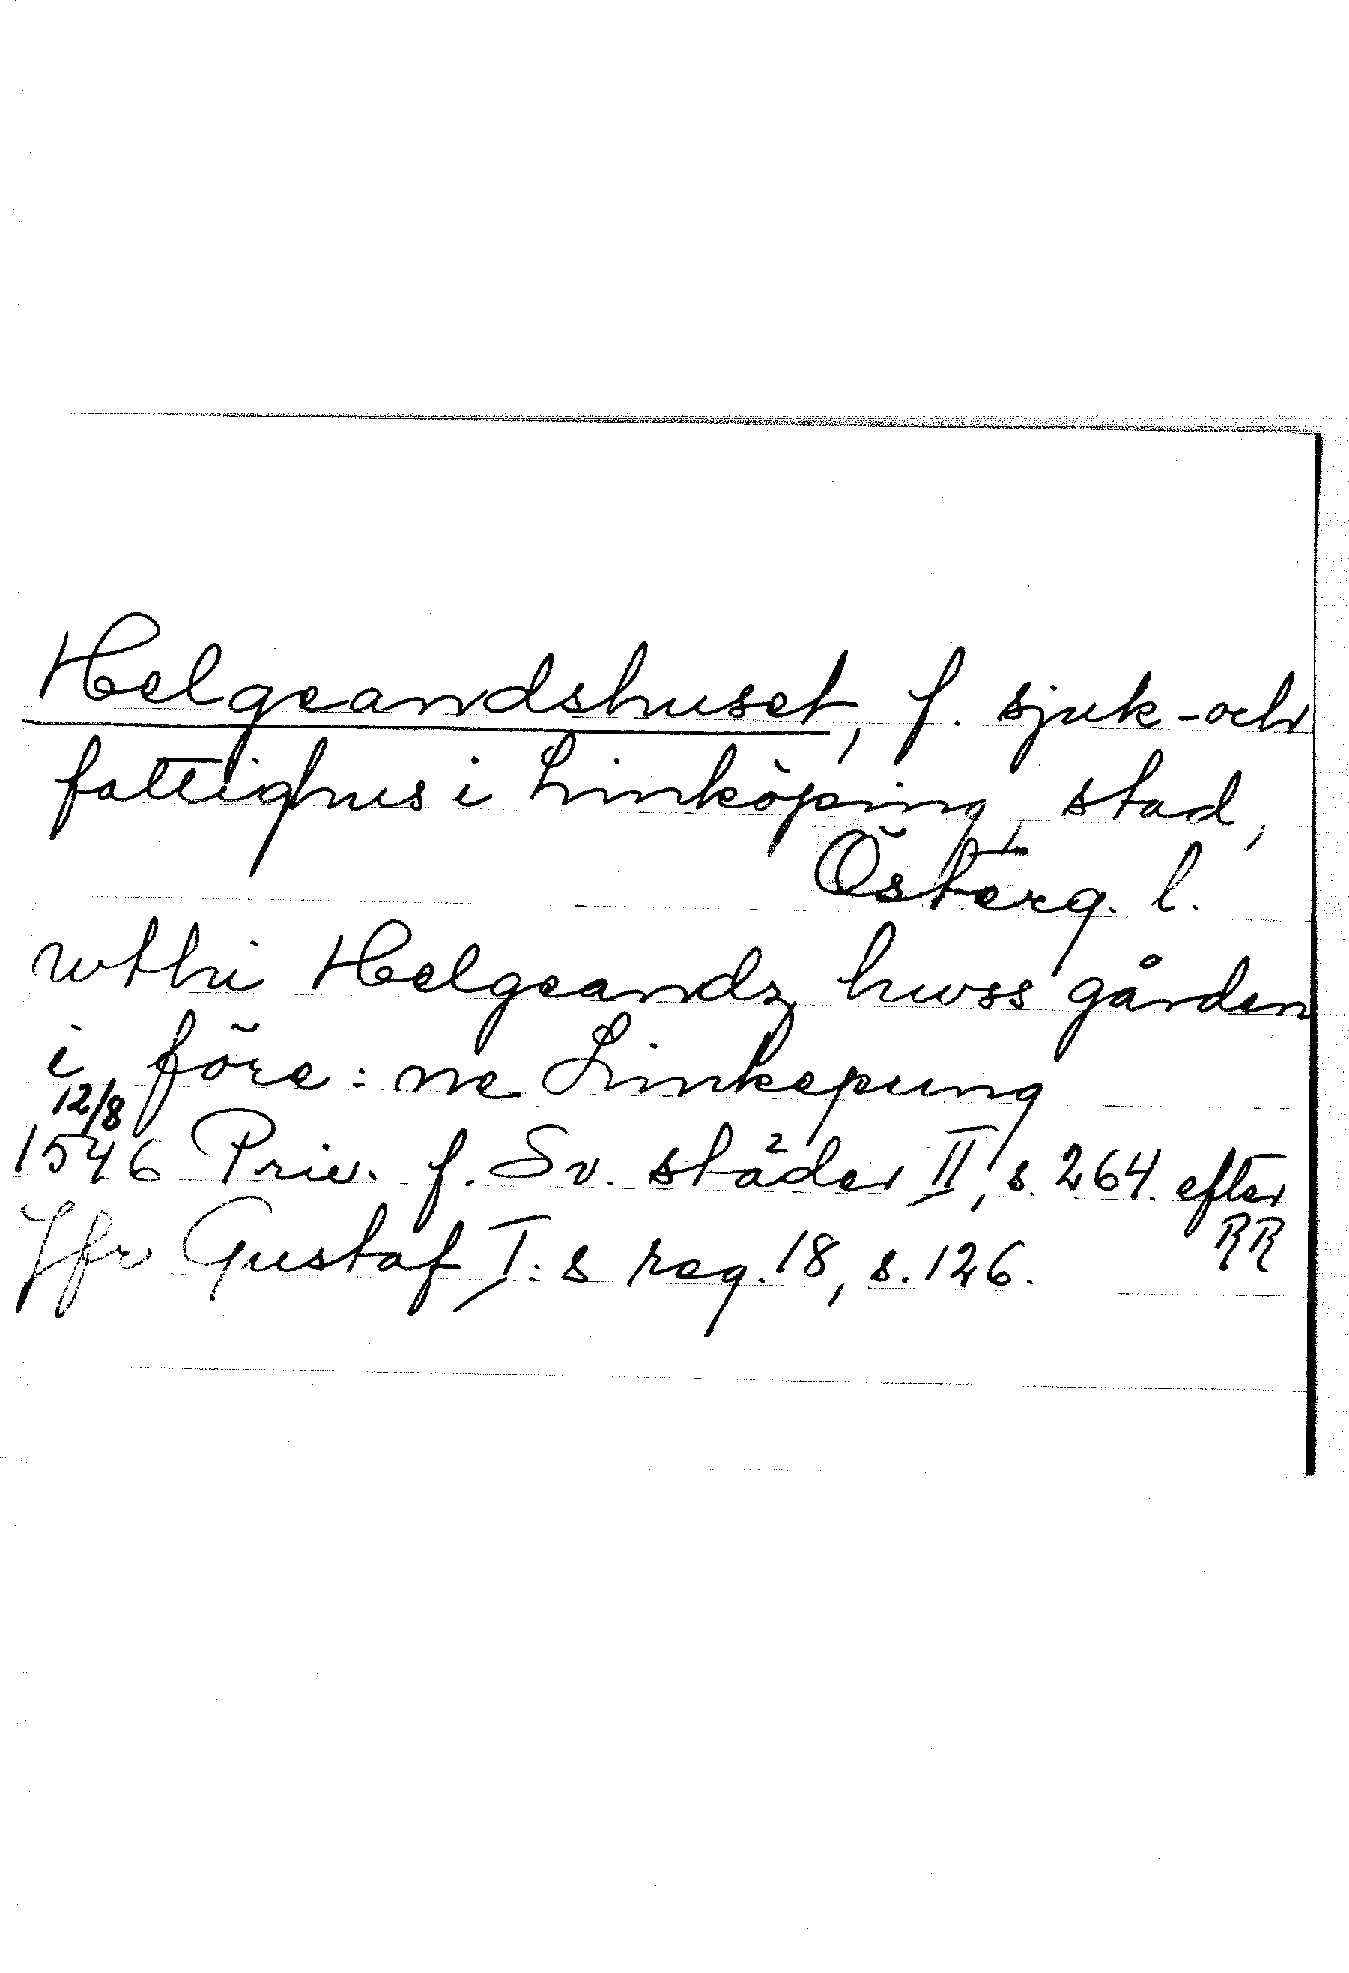 Helgeandshuset, f. sjuk- och
fattighus i Linköping stad,
Österg. l.
wthi Helgeandz hwss gården
i före:ne Linkepung
12/8
1546 Priv. f. Sv. städer II, s. 264. efter
RR
Jfr Gustaf I:s reg. 18, s. 126.